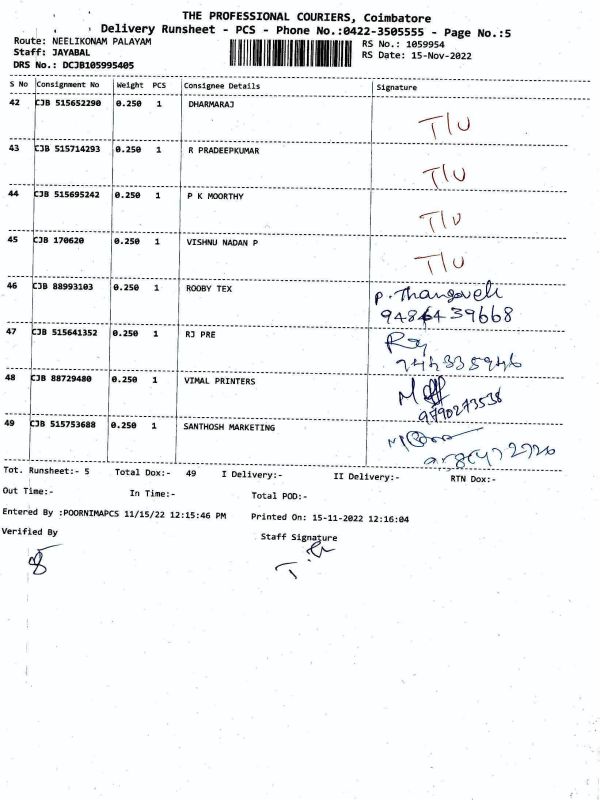 THE PROFESSIONAL COURIERS, Coimbatore
Delivery Runsheet - PCS - Phone No.:0422-3505555 - Page No.:5
Route: NEELIKONAM PALAYAM RS No.: 1059954
Staff: JAYABAL RS Date: 15-Nov-2022
DRS No.: DCJB105995405
S No Consignment No Weight PCS Consignee Details Signature
42 CJB 515652290 0.250 1 DHARMARAJ T/U
43 CJB 515714293 0.250 1 R PRADEEPKUMAR T/U
44 CJB 515695242 0.250 1 P K MOORTHY T/U
45 CJB 170620 0.250 1 VISHNU NADAN P T/U
46 CJB 88993103 0.250 1 ROOBY TEX P. Thangavel
47 CJB 515641352 0.250 1 RJ PRE
48 CJB 88729480 0.250 1 VIMAL PRINTERS
9790273538
49 CJB 515753688 0.250 1 SANTHOSH MARKETING
Tot. Runsheet:- 5 Total Dox:- 49 I Delivery:- II Delivery:- RTN Dox:-
Out Time:- In Time:- Total POD:-
Entered By :POORNIMAPCS 11/15/22 12:15:46 PM Printed On: 15-11-2022 12:16:04
Verified By Staff Signature